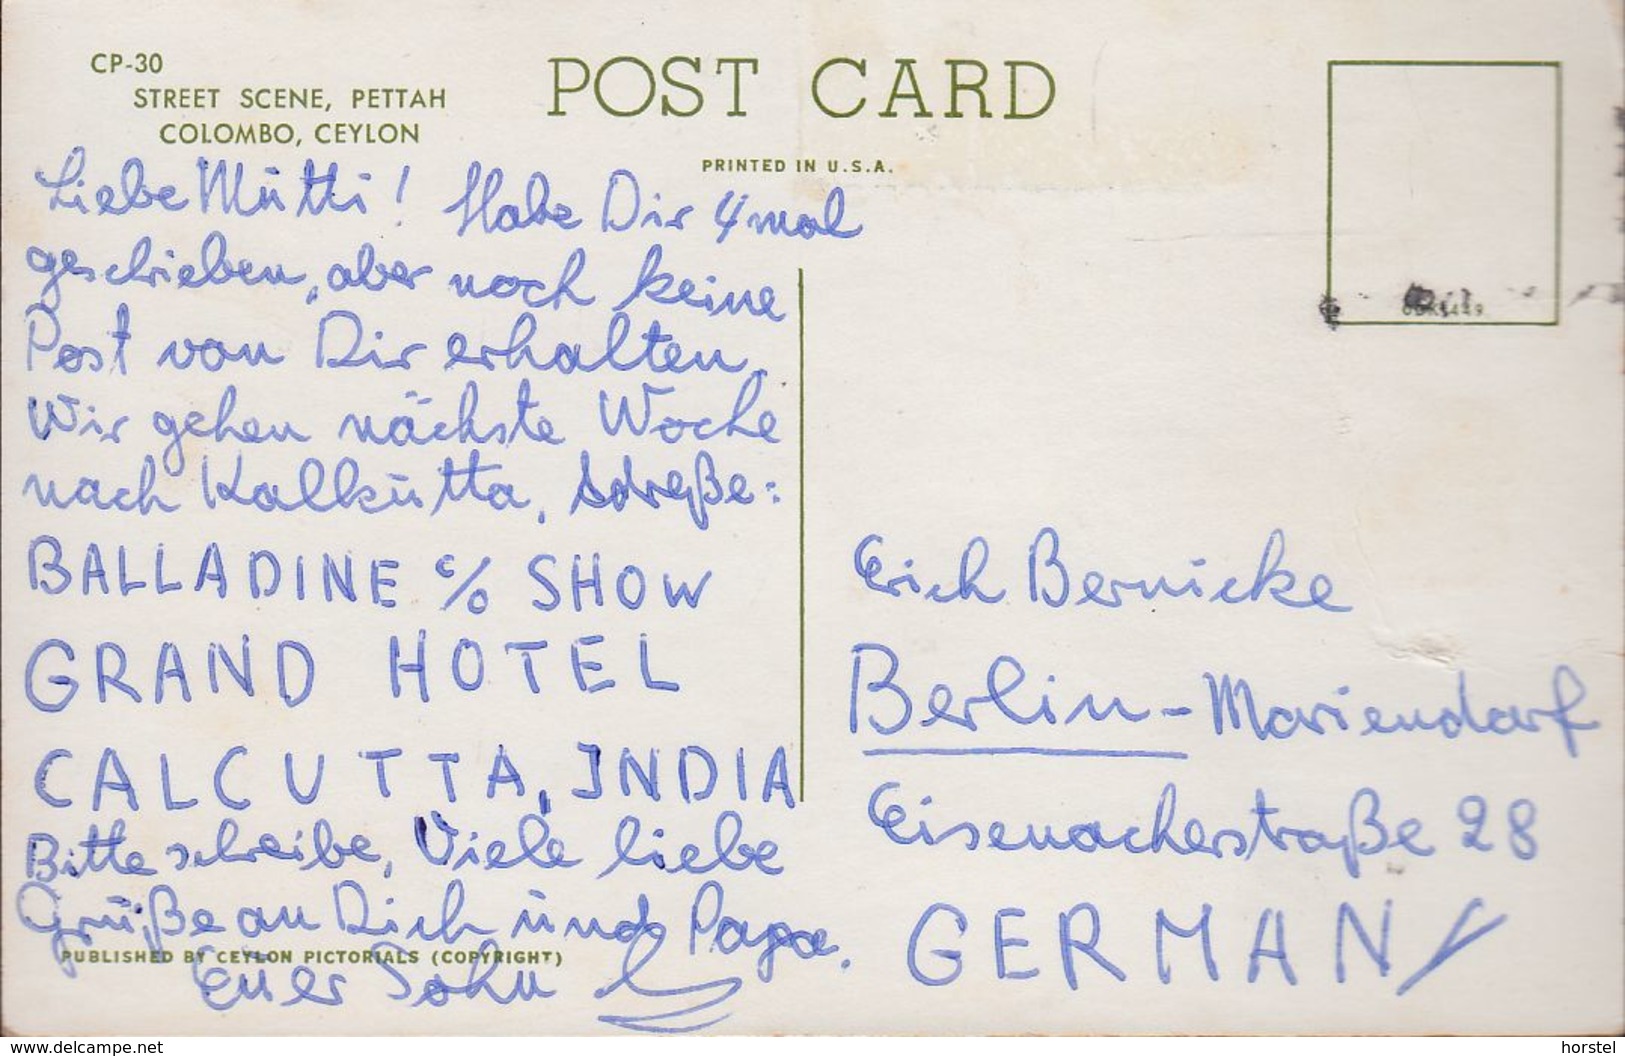 CP-30
STREET SCENE, PETTAH
COLOMBO, CEYLON
POST CARD
PRINTED IN U.S.A.
Liebe Mutti! Habe Dir 4 mal
geschrieben, aber noch keine
Post von Dir erhalten.
Wir gehen nächste Woche
nach Kalkutta. Adreße:
BALLADINE c/o SHOW
GRAND HOTEL
CALCUTTA, INDIA
Bitte schreibe, Viele liebe
Grüße an Dich und Papa.
Euer Sohn
PUBLISHED BY CEYLON PICTORIALS (COPYRIGHT)
Erich Bernicke
Berlin-Mariendorf
Eisenacherstraße 28
GERMANY
www.delcampe.net
horstel